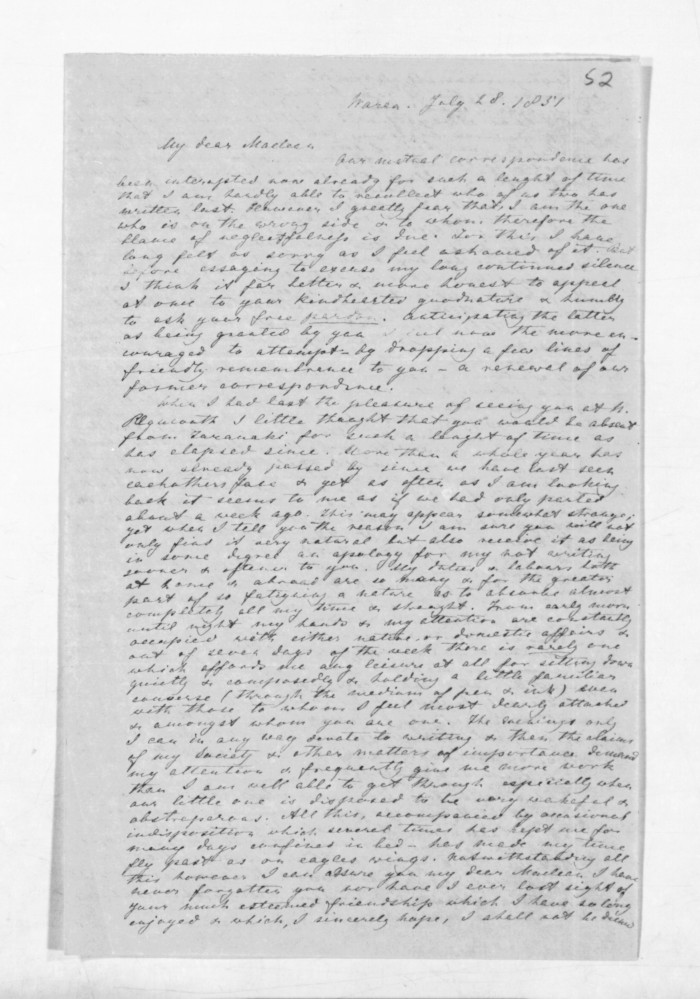 52
Warea. July 28. 1851
My dear Maclean
Our mutual correspondence has
been interupted now already for such a lenght of time
that I am hardly able to recollect who of us two has
written last. However I greatly fear that I am the one
who is on the wrong side & to whom therefore the
blame of neglectfulness is due. For this I have
long felt as sorry as I feel ashamed of it. But
before essaging to excuse my long continued silence
I think it far better & more honest to appeal
at once to your kindhearted goodnature & humbly
to ask your free pardon. Anticipating the latter
as being granted by you I feel now the more en-
couraged to attempt - by dropping a few lines of
friendly remembrance to you - a renewal of our
former correspondence.
When I had last the pleasure of seeing you at N.
Plymouth I little thought that you would be absent
from Taranaki for such a lenght of time as
has elapsed since. More than a whole year has
now already passed by since we have last seen
eachothers face & yet as often as I am looking
back it seems to me as if we had only parted
about a week ago. This may appear somewhat strange;
yet when I tell you the reason I am sure you will not
only find it very natural but also receive it as being
in some degree an apology for my not writing
sooner & oftener to you. My duties & labours both
at home & abroad are so many & for the greater
part of so fatiguing a nature as to absorbe almost
completely all my time & strenght. From early morn
until night my hands & my attention are constantly
occupied with either native or domestic affairs &
out of seven days of the week there is rarely one
which affords me any leisure at all for sitting down
quietly & composedly & holding a little familiar
converse (through the medium of pen & ink) even
with those to whom I feel most dearly attached
& amongst whom you are one. The evenings only
I can in any way devote to writing & then the claims
of my Society & other matters of importance demand
my attention & frequently give me more work
than I am well able to get through especially when
our little one is disposed to be very wakeful &
obstreperous. All this, accompanied by occasional
indisposition which several times has kept me for
many days confined in bed - has made my time
fly past as on eagles wings. Notwithstanding all
this however I can assure you my dear Maclean I have
never forgotten you nor have I ever lost sight of
your much esteemed friendship which I have so long
enjoyed & which, I sincerely hope, I shall not be